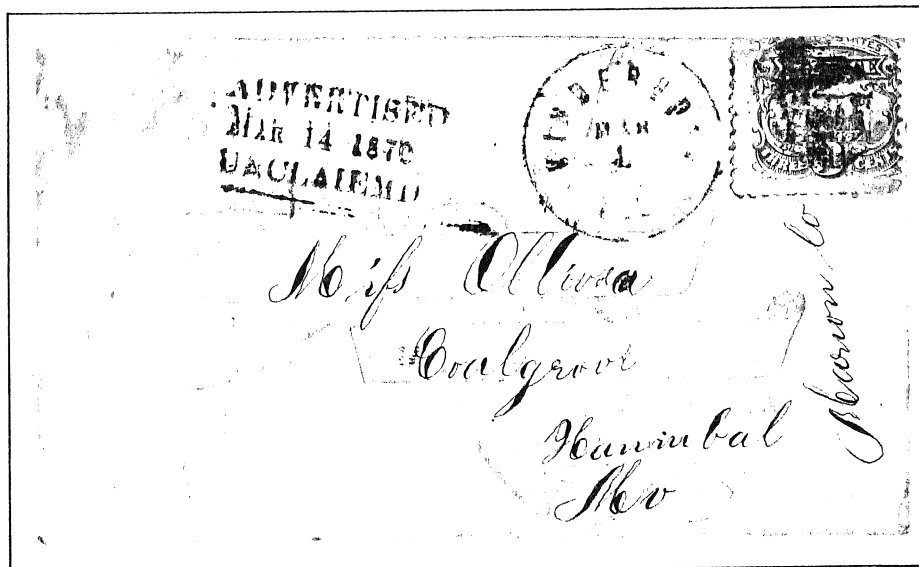 ADVERTISED
MAR 14 1870
UNCLAIEMD
MAR
1
THREE CENTS
Miss Ollivia
Coalgrove
Hannibal
Mo
Marion Co